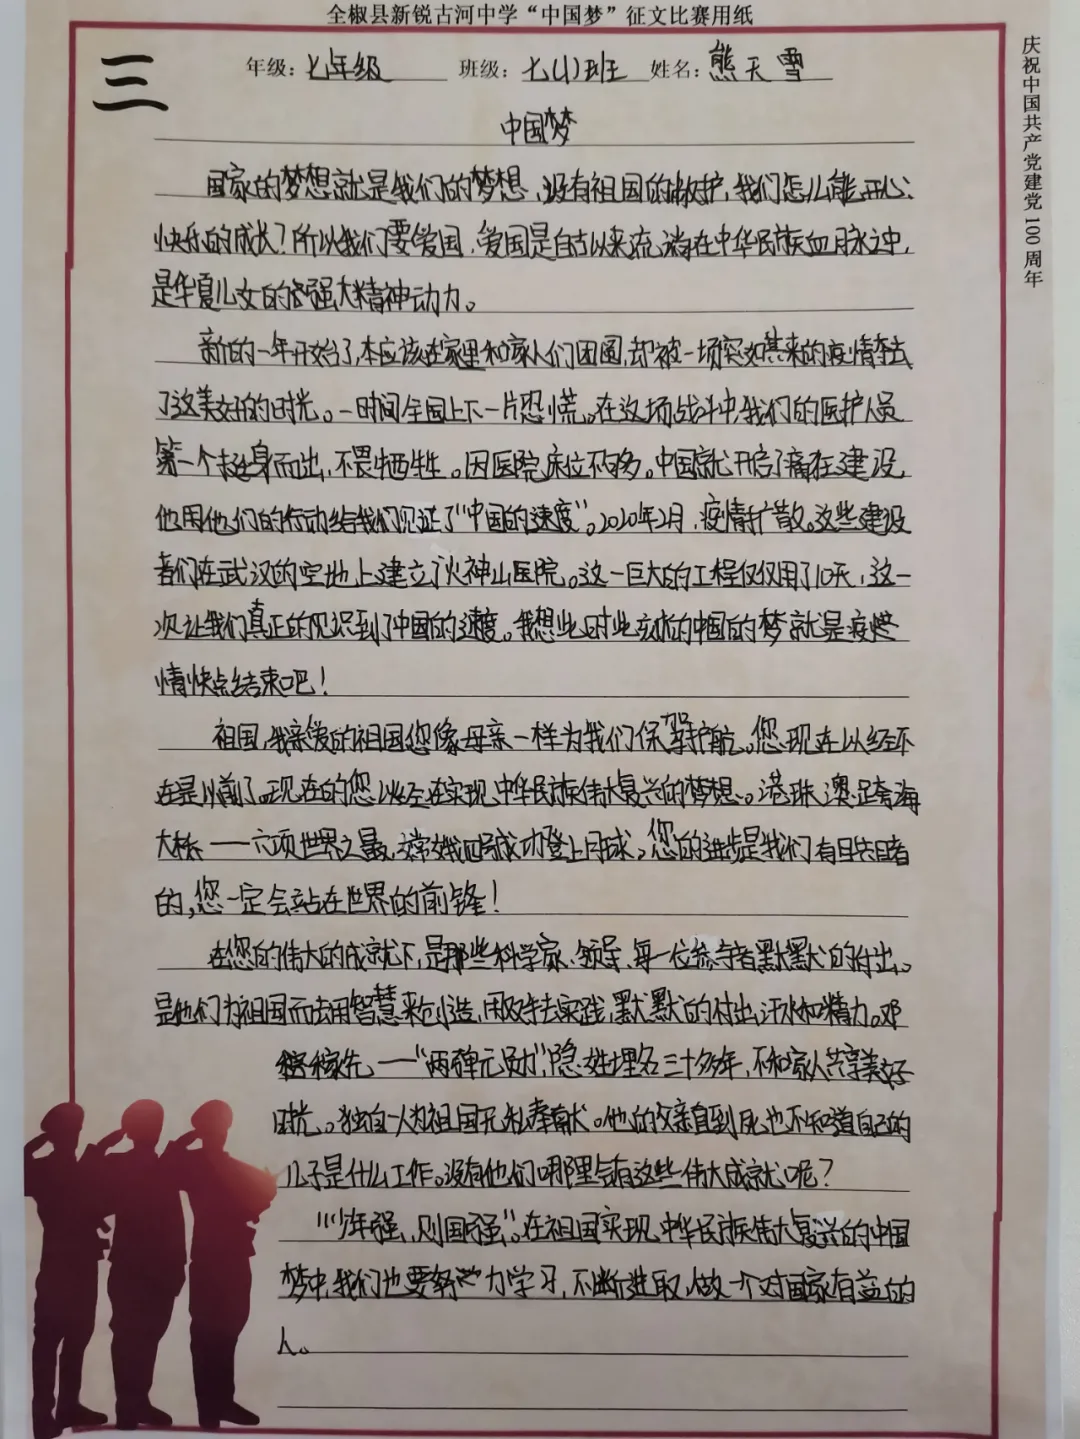 全椒县新锐古河中学“中国梦”征文比赛用纸
庆祝中国共产党建党100周年
三
年级：七年级 班级：七(1)班 姓名：熊天雪
中国梦
国家的梦想就是我们的梦想，没有祖国的守护，我们怎么能开心
快乐的成长？所以我们要爱国，爱国是自古以来流淌在中华民族血脉之中，
是华夏儿女的强大精神动力。
新的一年开始了，本应该在家里和家人们团圆，却被一场突如其来的疫情夺去
了这美好的时光。一时间全国上下一片恐慌。在这场战斗中，我们的医护人员
第一个挺身而出，不畏牺牲。因医院床位不够。中国就开启了疯狂建设，
他用他们的行动给我们见证了“中国的速度”。2020年2月，疫情扩散。这些建设
者们在武汉的空地上建立了火神山医院。这一巨大的工程仅仅用了10天，这一
次让我们真正的见识到了中国的速度。我想此时此刻的中国的梦就是疫
情快点结束吧！
祖国，我亲爱的祖国您像母亲一样为我们保驾护航。您现在以经不
在是以前了。现在的您以经在实现中华民族伟大复兴的梦想。港珠澳跨海
大桥——六项世界之最，嫦娥四号成功登上月球。您的进步是我们有目共睹
的，您一定会站在世界的前锋！
在您的伟大的成就下，是那些科学家、领导、每一位参与者默默的付出。
是他们为祖国而去用智慧来创造，用双手去实践，默默的付出汗水和精力。邓
稼先——“两弹元勋”，隐姓埋名三十多年，不和家人共享美好
时光。独自一人为祖国无私奉献。他的父亲直到死也不知道自己的
儿子是什么工作。没有他们哪里会有这些伟大成就呢？
“少年强，则国强”。在祖国实现中华民族伟大复兴的中国
梦中，我们也要努力学习，不断进取，做一个对国家有益的
人。